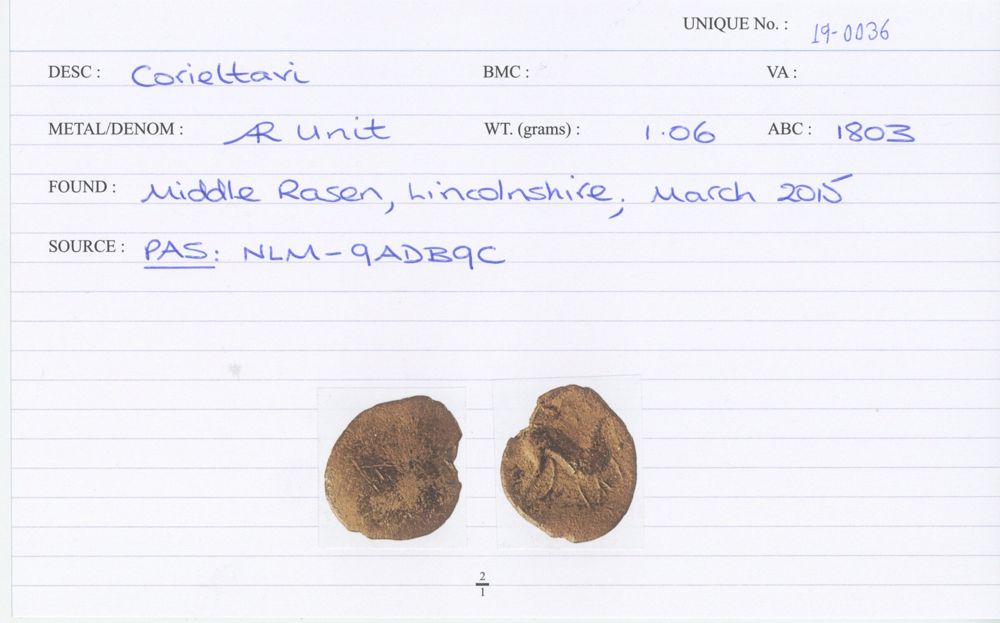 UNIQUE No. : 19-0036
DESC : Corieltavi BMC : VA :
METAL/DENOM : AR Unit WT. (grams) : 1.06 ABC : 1803
FOUND : Middle Rasen, Lincolnshire; March 2015
SOURCE : PAS: NLM-9ADB9C
2
1